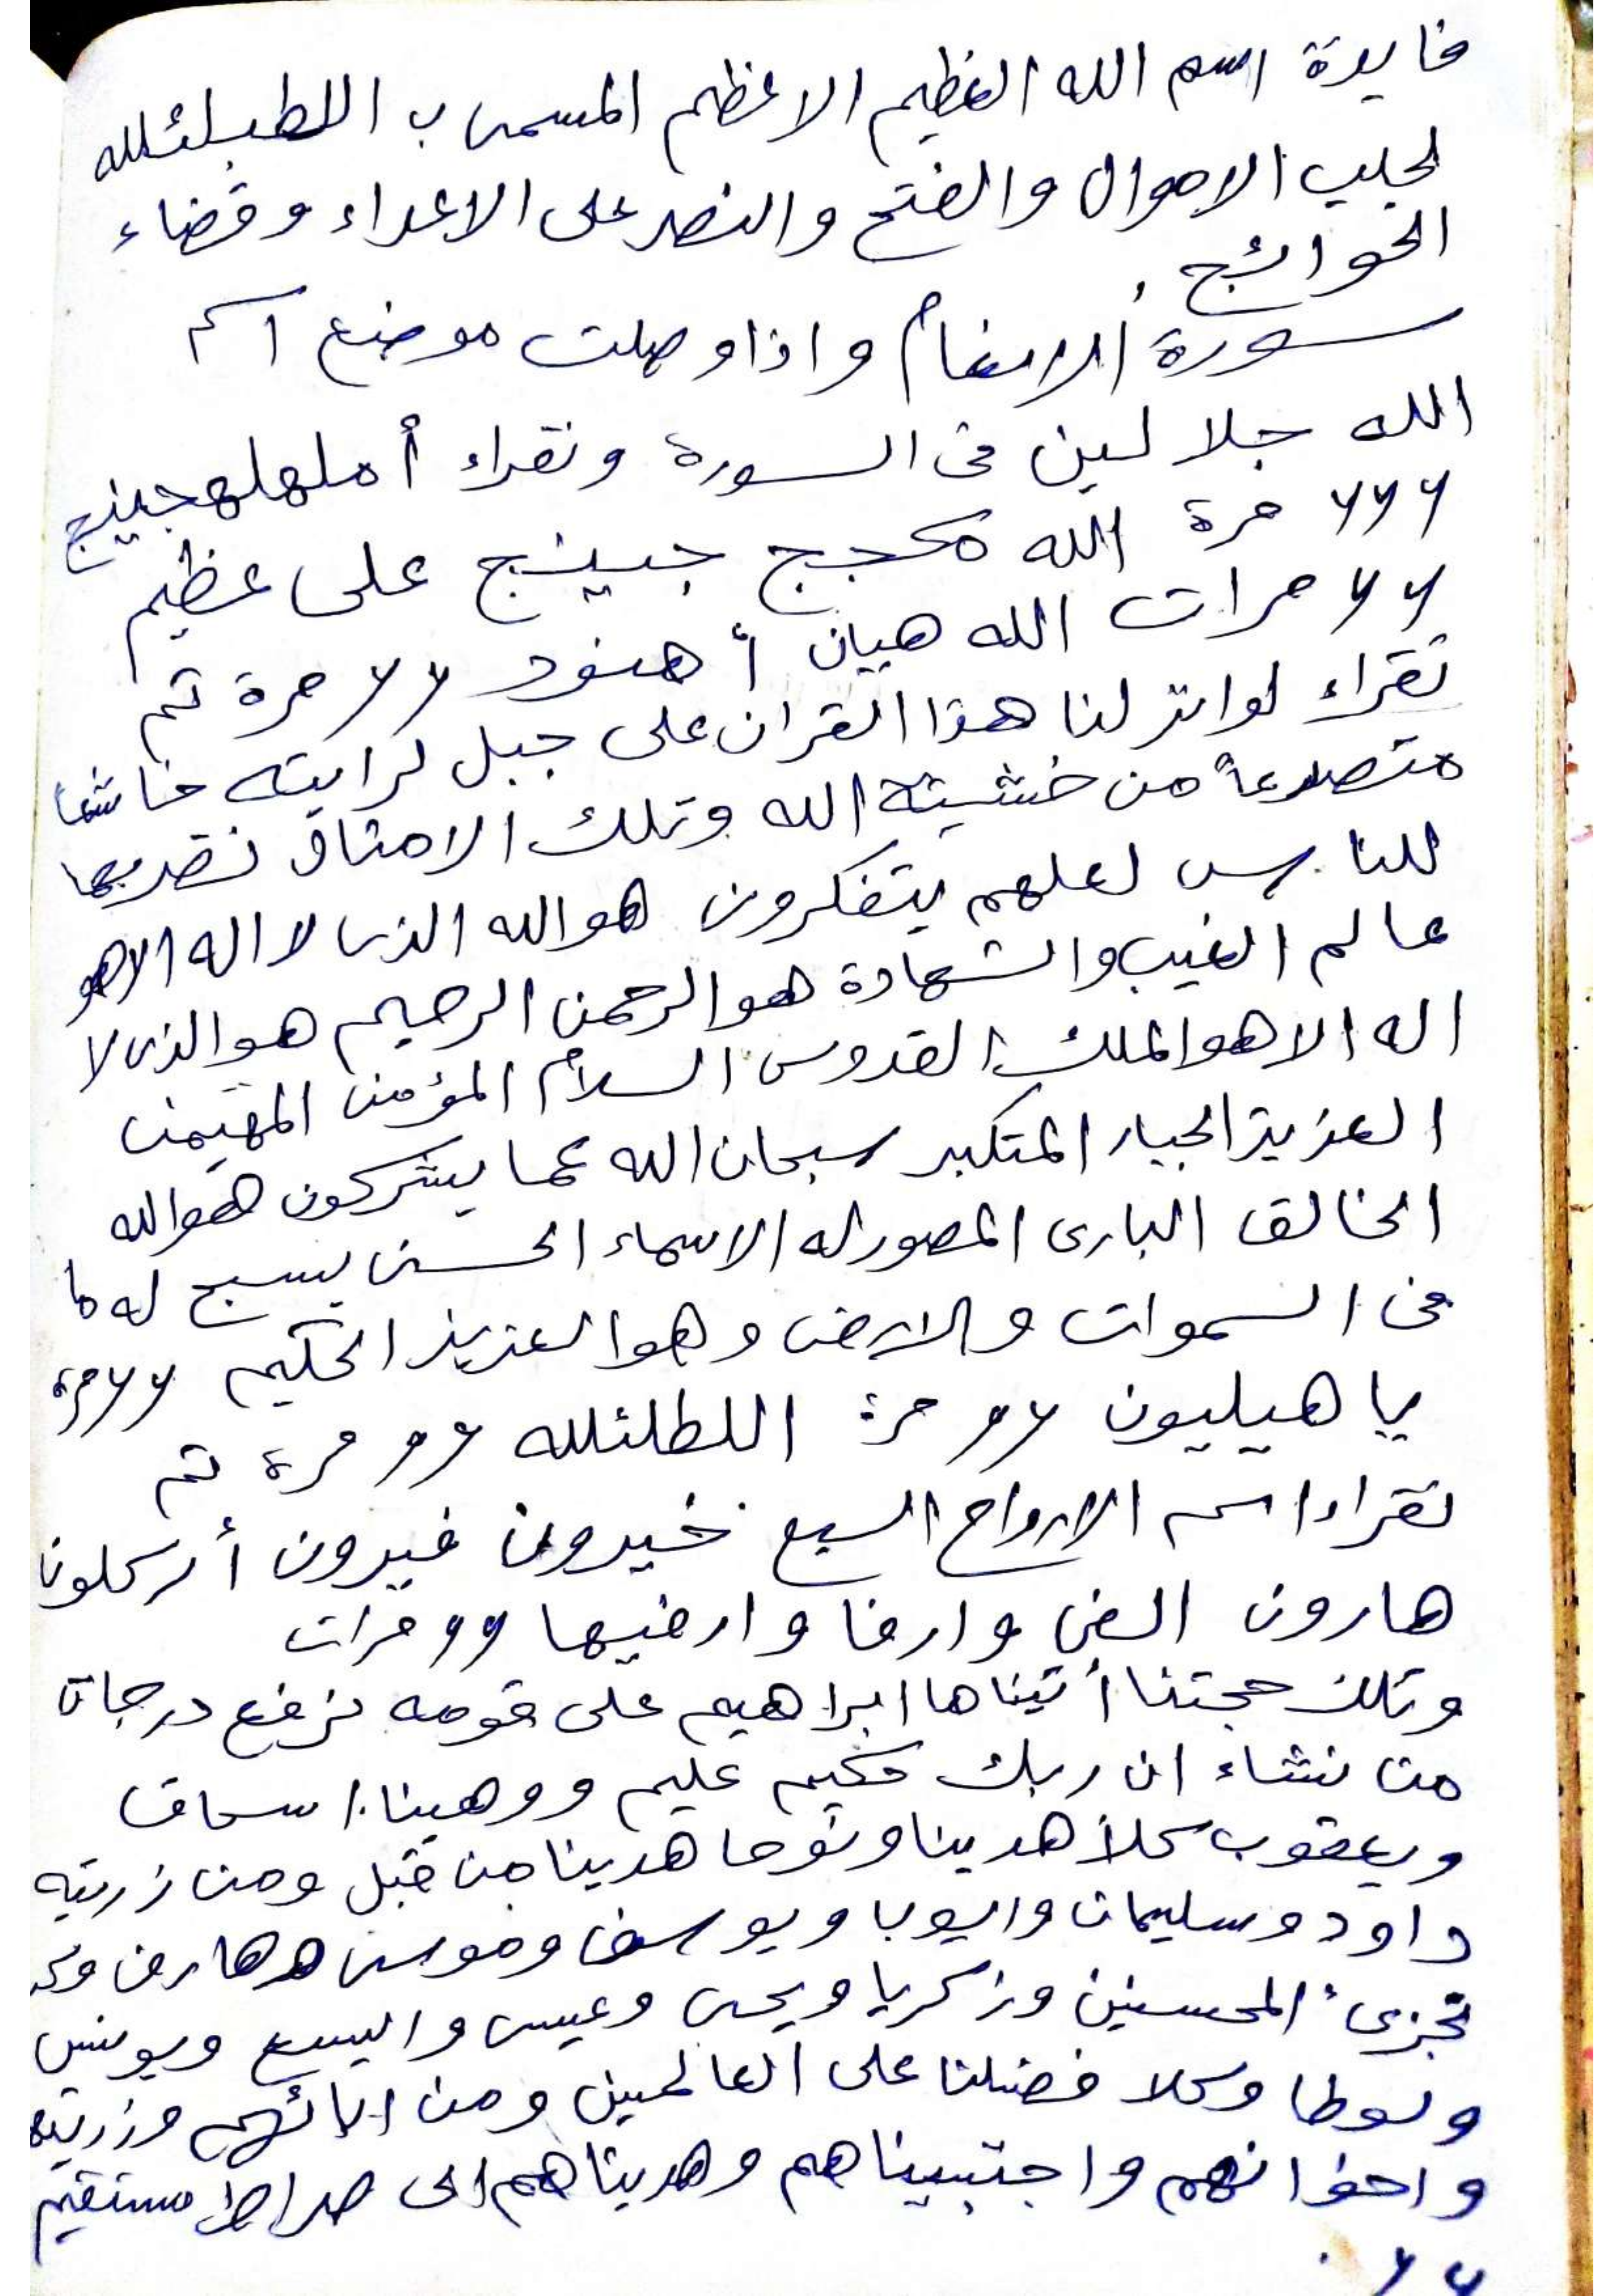 فايدة اسم الله العظيم الاعظم المسمى ب اللطبلئلله
لجلب الاموال والفتح والنصر على الاعداء وقضاء
الحوائج.
سورة الانعام واذا وصلت موضع اسم
الله جلا لين فى السورة وتقراء أملهلهجينج
٦٦٦ مرة الله محجج جبينج على عظيم
٦٦ مرات الله هيان أهنود ٦٦ مرة تم
تقراء لوانزلنا هذا القران على جبل لرايته خاشعا
متصدعاً من خشيتة الله وتلك الامثال نضربها
للناس لعلهم يتفكرون هوالله الذى لا اله الاهو
عالم الغيب والشهادة هوالرحمن الرحيم هوالذى لا
اله الاهوالملك القدوس السلام المؤمن المهيمن
العزيزالجبار المتكبر سبحان الله عما يشركون هوالله
الخالق البارى المصورله الاسماء الحسنى يسبح له ما
فى السموات والارض وهوالعزيز الحكيم ٦٦ مرة
يا هيليون ٦٦ مرة اللطلئلله ٦٦ مرة تم
تقراء اسم الارواح السبع خيرون فيرون أركلونا
هارون الضى وارفا وارضيها ٦٦ مرات
وتلك حجتنا أتيناها ابراهيم على قومه نرفع درجات
من نشاء ان ربك حكيم عليم ووهبنا اسحاق
ويعقوب كلاً هدينا ونوحا هدينا من قبل ومن زريته
داود وسليمان وايوب ويوسف وموسى وهارون
تجزىء المحسنين وزكريا ويحى وعيسى واليسع ويونس
ولوطا وكلا فضلنا على العالمين ومن ابائهم وزريته
واخوانهم واجتبيناهم وهديناهم الى صراط مستقيم
٦٦.